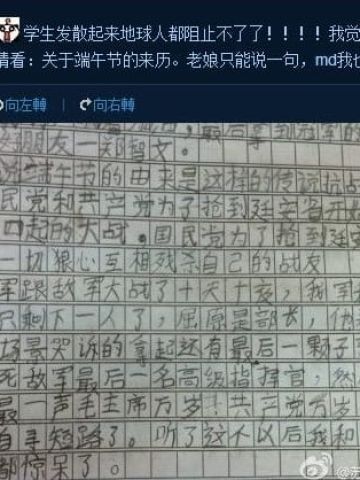 学生发散起来地球人都阻止不了了！！！！我觉
请看：关于端午节的来历。老娘只能说一句，md我也
向左轉 向右轉
朋友一郑智文。
端午节的由来是这样的传说抗战
民党和共产党为了抢到延安召开
四起的大战。国民党为了抢到延安
一切狠心互相残杀自己的战友
军跟敌军大战了十天十夜，我军
只剩下一人了，屈原是部长，伤
场最哭诉的拿起还有最后一颗子
死敌军最后一名高级指挥官，然
最一声毛主席万岁！共产党万岁
自寻短路了。听了这个以后我和
都惊呆了。